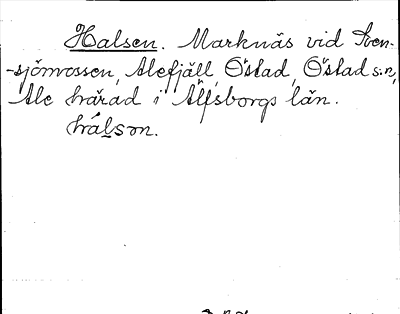 Halsen. Marknäs vid Sven-
-sjömossen, Alefjäll, Östad, Östad s:n,
Ale härad i Älfsborgs län.
hálson.